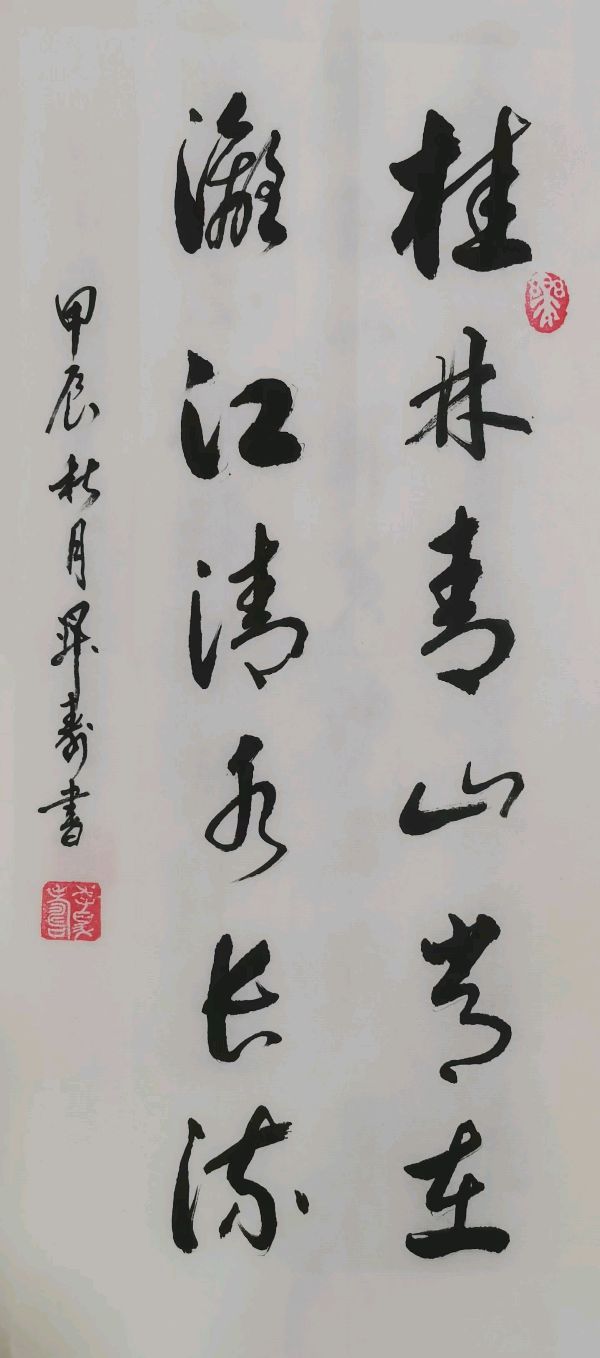 桂林青山常在
灕江清水长流
甲辰秋月 寿書